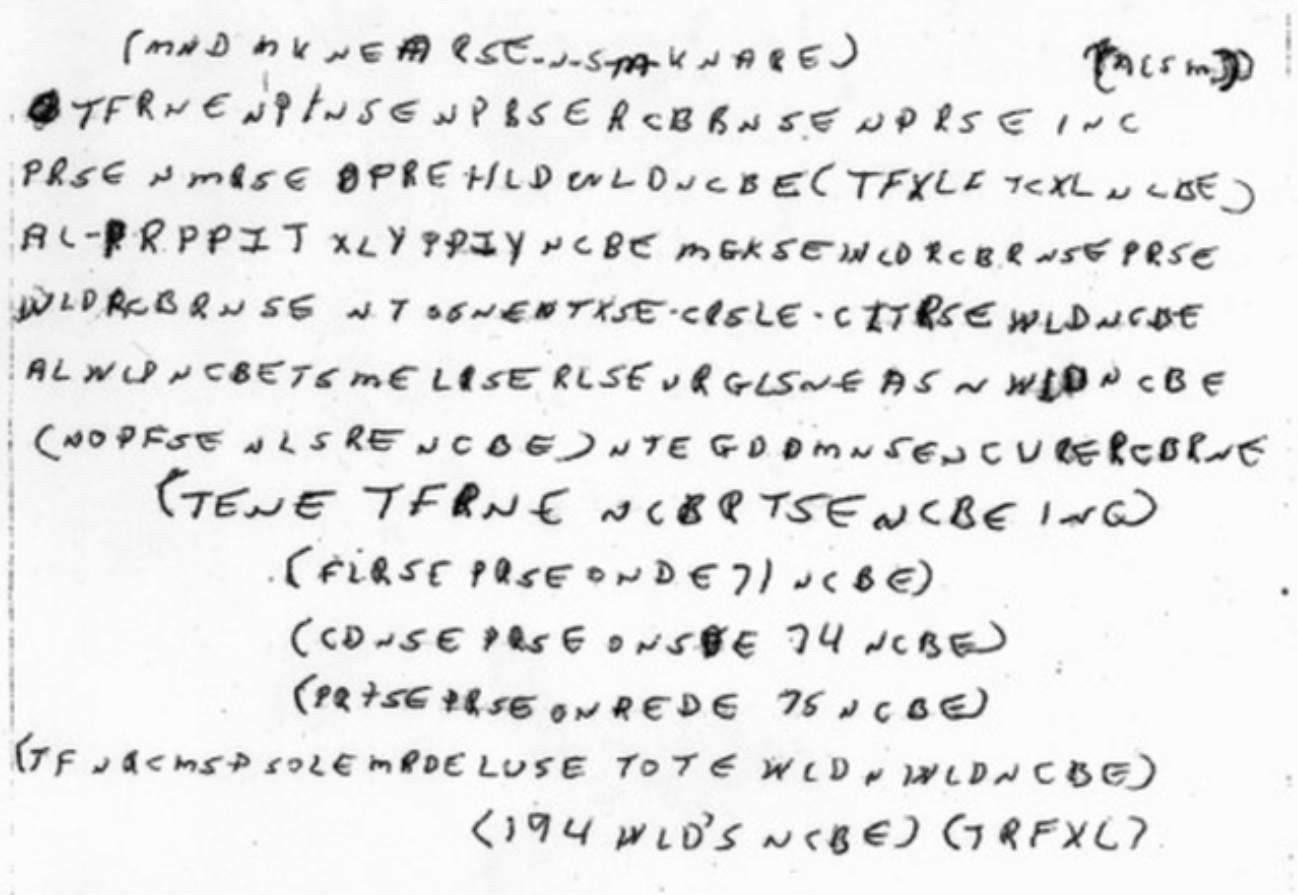 (MND MKNEARSE-N-S-M-KNARE) (ACSM)
TFRNENPINSENPBSERCBBRNSENPRSEINC
PRSENMRSEOPREHLDWLDNCBE(TFXLFTCXLNCBE)
AL-PRPPITXLYPPIYNCBEMGKSEINCDRCBRNSEPRSE
WLDRCBRNSENTSGNENTXSE-CRSLE-CITRSEWLDNCBE
ALWLPNCBETSMELRSERLSEURGLSNEASNWLDNCBE
(NOPFSENLSRENCBE)NTEGDDMNSENCURERCBRNE
(TENETFRNENCBRTSENCBEINC)
(FLRSEPRSEONDE71NCBE)
(CDNSEPRSEONSDE74NCBE)
(PRTSEPRSEONREDE75NCBE)
(TFNQCMSPSOLEMRDELUSETOTEWLDNWLDNCBE)
(194WLD'SNCBE)(TRFXL)